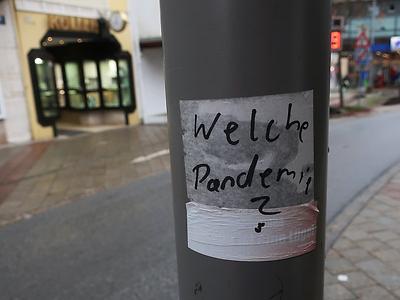 Welche
Pandemie
?